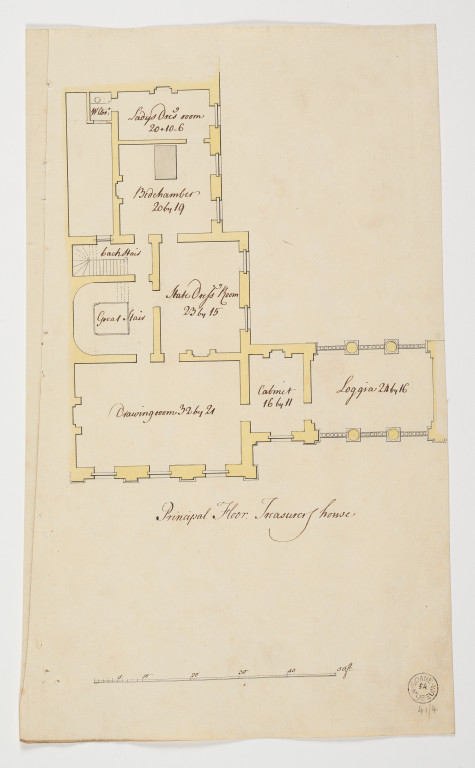 W. Clos.t
Ladys Dres.g room
20 + 10-6
Bedchamber
20 by 19
back Stairs
State Dress.g Room
23 by 15
Great Stair
Drawing room 32 by 21
Cabinet
16 by 11
Loggia 24 by 16
Principal Floor. Treasurers house.
5 10 20 30 40 50 ft
41/4